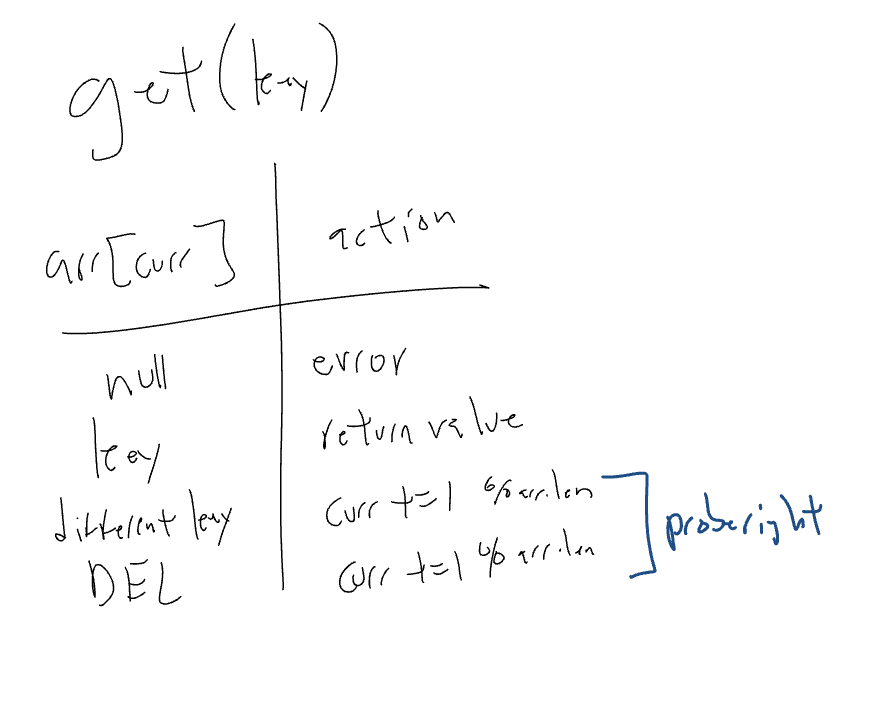 get(key)
arr[curr] action
null error
key return value
different key curr += 1 % arr.len
DEL curr += 1 % arr.len
probe right